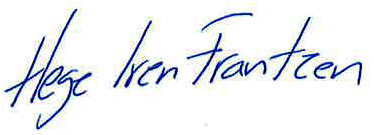 Hege Iren Frantzen